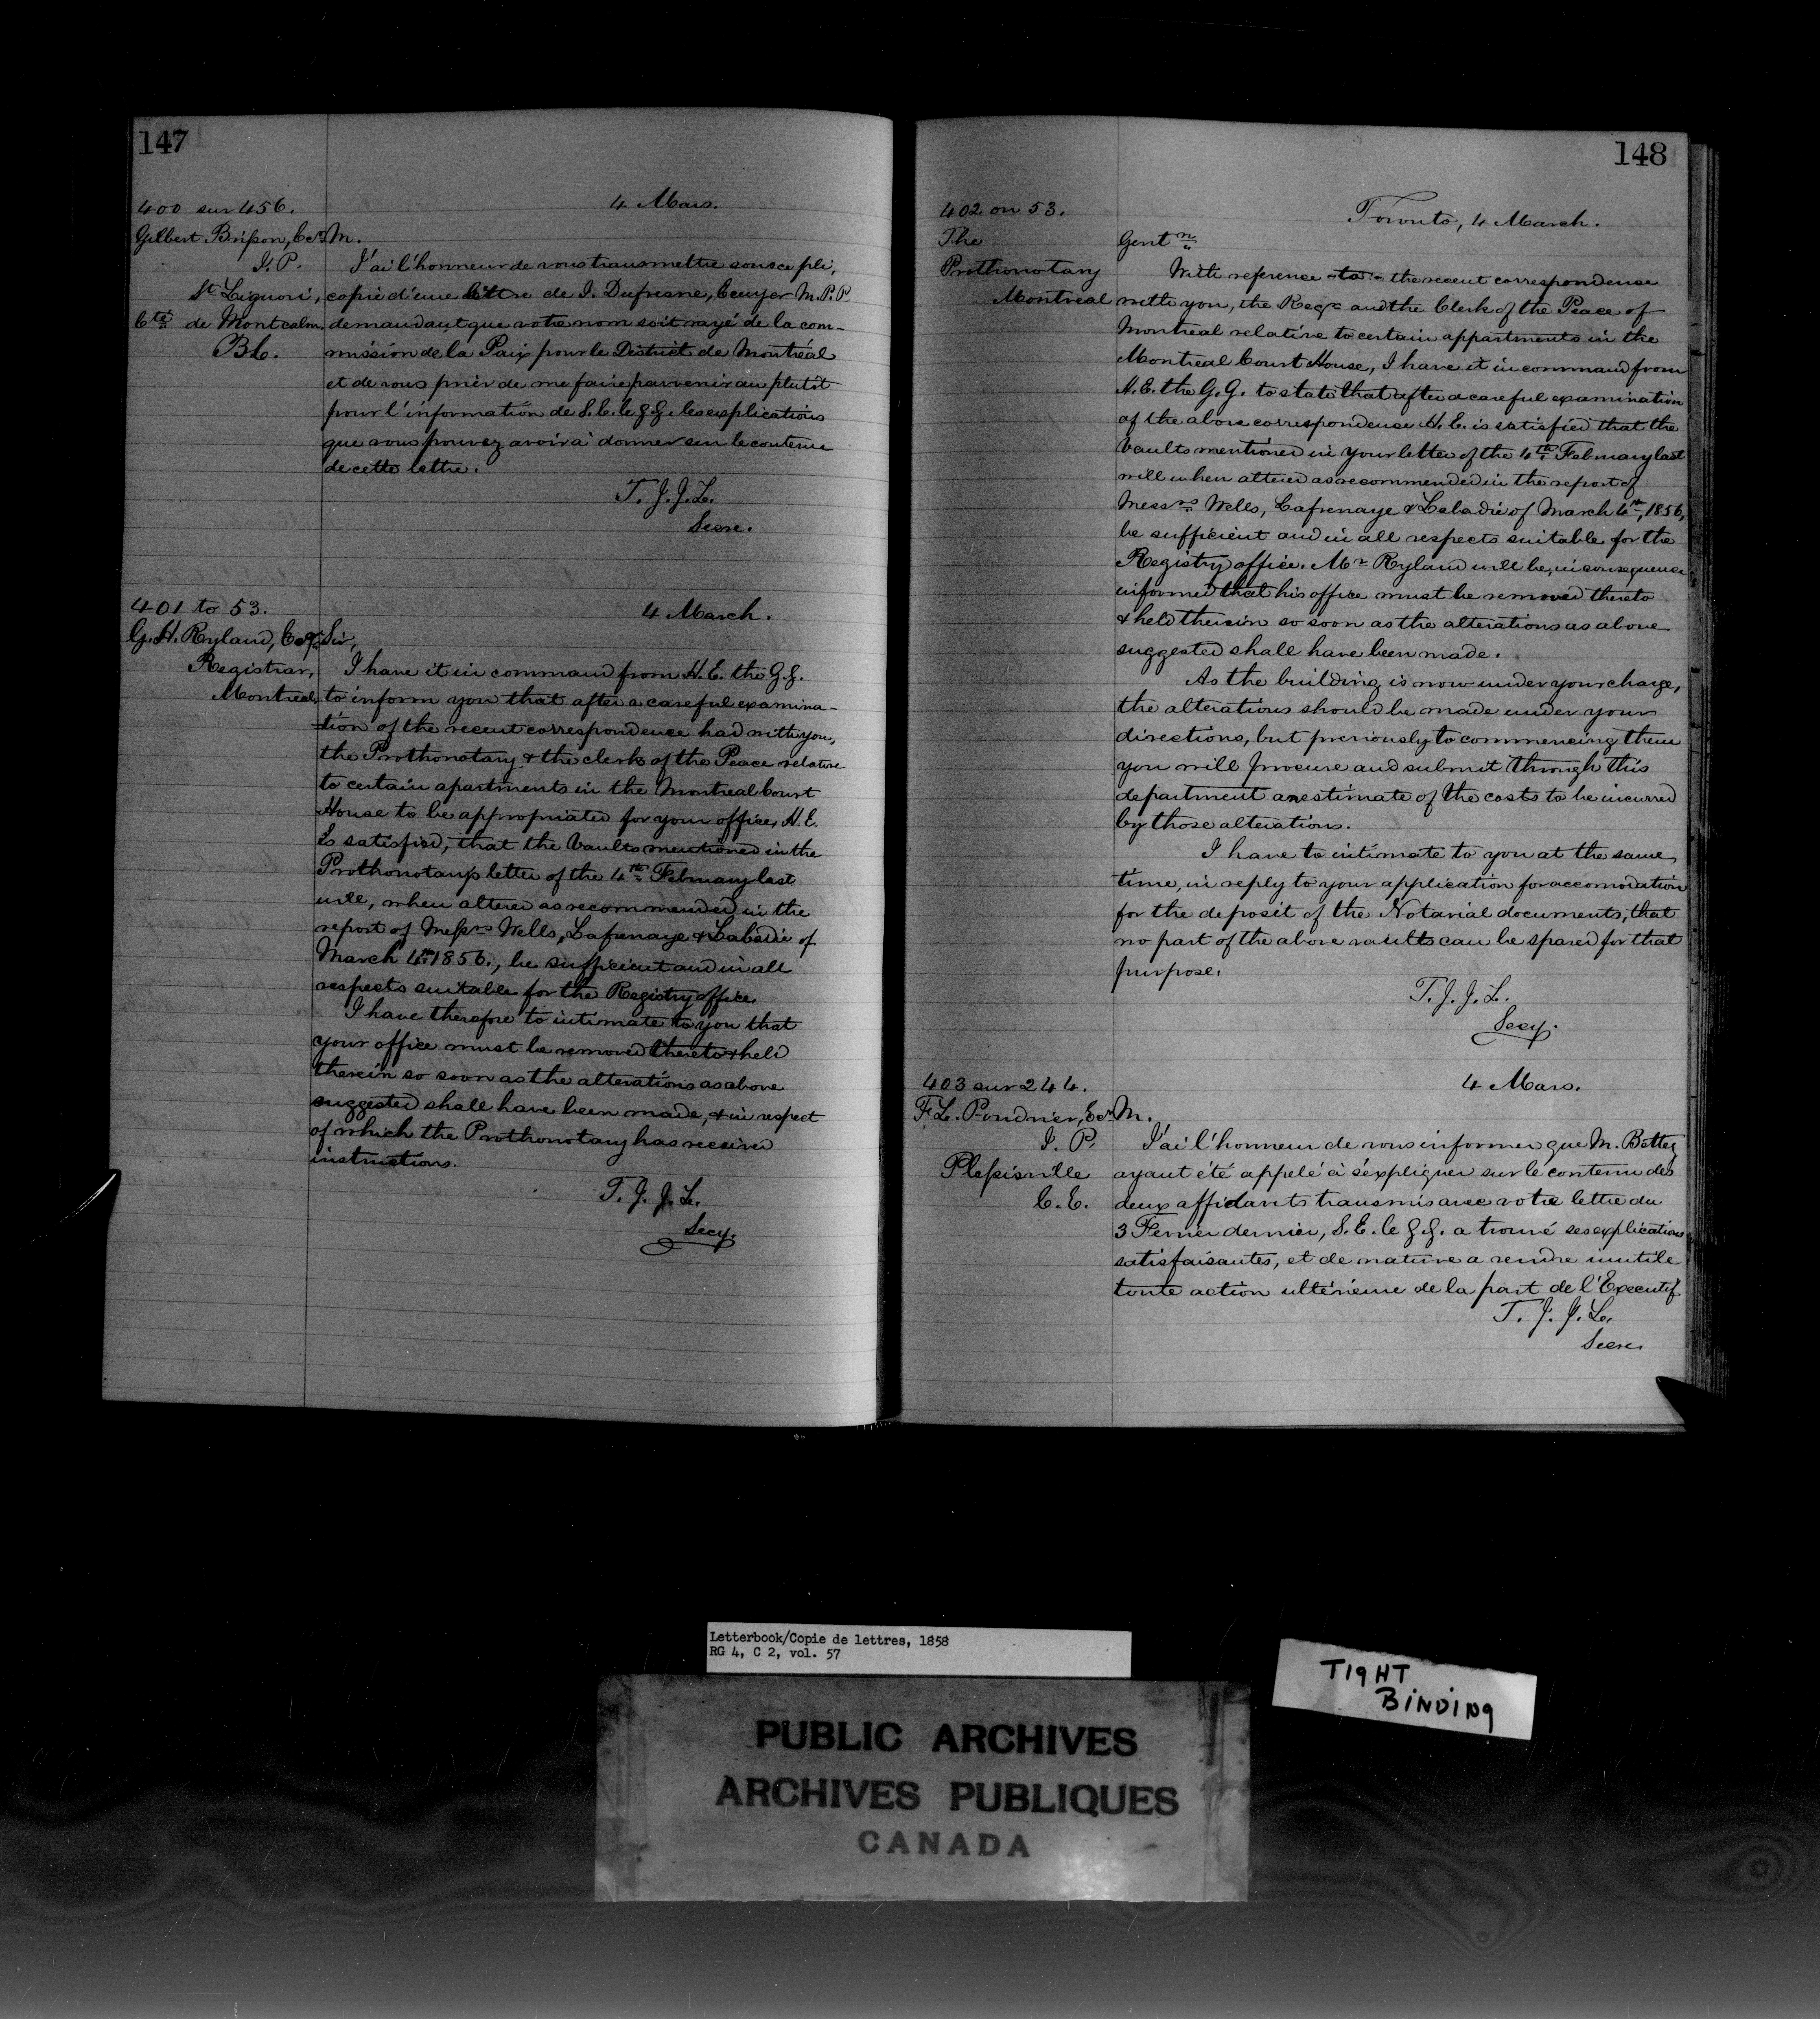 147
400 sur 456.
4 Mars.
Gilbert Brisson, Ecr
M.
J. P.
St Liguori,
Cté de Montcalm,
B.C.
J'ai l'honneur de vous transmettre sous ce pli,
copie d'une lettre de J. Dufresne, Ecuyer M.P.P
demandant que votre nom soit rayé de la com-
mission de la Paix pour le District de Montréal
et de vous prier de me faire parvenir au plutôt
pour l'information de S.E. le G.G. les explications
que vous pouvez avoir à donner sur le contenu
de cette lettre.
T. J. J. L.
Secre.
401 to 53.
4 March.
G. H. Ryland, Esqr
Registrar,
Montreal,
Sir,
I have it in command from H.E. the G.G.
to inform you that after a careful examina-
tion of the recent correspondence had with you,
the Prothonotary & the clerk of the Peace relative
to certain apartments in the Montreal Court
House to be appropriated for your office, H.E.
is satisfied, that the Vaults mentioned in the
Prothonotary's letter of the 4th February last
will, when altered as recommended in the
report of Messrs Wells, Lafrenaye & Labadie of
March 4th 1856., be sufficient and in all
respects suitable for the Registry office.
I have therefore to intimate to you that
your office must be removed thereto & held
therein so soon as the alterations as above
suggested shall have been made, & in respect
of which the Prothonotary has received
instructions.
T. J. J. L.
Secy.
148
402 on 53.
Toronto, 4 March.
The
Prothonotary
Montreal
Gentn
With reference to the recent correspondense
with you, the Regr and the Clerk of the Peace of
Montreal relative to certain appartments in the
Montreal Court House, I have it in command from
H.E. the G.G. to state that after a careful examination
of the above correspondense H.E. is satisfied that the
Vaults mentioned in your letter of the 4th February last
will when altered as recommended in the report of
Messrs Wells, Lafrenaye & Labadie of March 4th, 1856,
be sufficient and in all respects suitable for the
Registry office. Mr Ryland will be, in consequence
informed that his office must be removed thereto
& held therein so soon as the alterations as above
suggested shall have been made.
As the building is now under your charge,
the alterations should be made under your
directions, but previously to commencing them
you will procure and submit through this
department an estimate of the costs to be incurred
by those alterations.
I have to intimate to you at the same
time, in reply to your application for accomodation
for the deposit of the Notarial documents, that
no part of the above vaults can be spared for that
purpose.
T. J. J. L.
Secy.
403 sur 244.
4 Mars.
F. L. Poudrier, Ecr
J. P.
Plessisville
C. E.
M.
J'ai l'honneur de vous informer que M. Battey
ayant été appelé à s'expliquer sur le contenu des
deux affidavits transmis avec votre lettre du
3 Fevrier dernier, S.E. le G.G. a trouvé ses explications
satisfaisantes, et de nature a rendre inutile
toute action ultérieure de la part de l'Executif.
T. J. J. L.
Secre.
Letterbook/Copie de lettres, 1858
RG 4, C 2, vol. 57
TIGHT
BINDING
PUBLIC ARCHIVES
ARCHIVES PUBLIQUES
CANADA